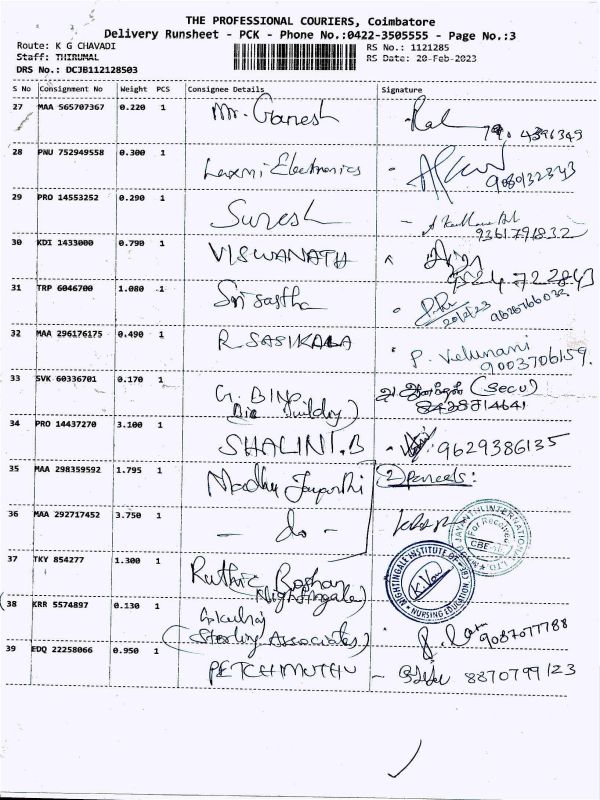 THE PROFESSIONAL COURIERS, Coimbatore
Delivery Runsheet - PCK - Phone No.:0422-3505555 - Page No.:3
Route: K G CHAVADI
RS No.: 1121285
Staff: THIRUMAL
RS Date: 20-Feb-2023
DRS No.: DCJB112128503
S No Consignment No Weight PCS Consignee Details Signature
27 MAA 565707367 0.220 1 Mr. Ganesh
28 PNU 752949558 0.300 1 Laxmi Electronics
29 PRO 14553252 0.290 1 Suresh
9361791832
30 KDI 1433000 0.790 1 VISWANATH
31 TRP 6046700 1.080 1 Sri sastha
20/2/23
32 MAA 296176175 0.490 1 R SASIKALA P. Velumani
9003706159.
33 SVK 60336701 0.170 1 G. BINO (Secu)
34 PRO 14437270 3.100 1 SHALINI.B 9629386135
35 MAA 298359592 1.795 1 Madhu 2 parcels:
36 MAA 292717452 3.750 1 - do -
JAYANTHI INTERNATIONAL
For Receiver
37 TKY 854277 1.300 1 Ruthic Roshan
(Nightingale)
NIGHTINGALE INSTITUTE OF NURSING EDUCATION
38 KRR 5574897 0.130 1 Gokulraj
(Sterling Associates) 9087077788
39 EDQ 22258066 0.950 1 PETCHIMUTHU 8870799123